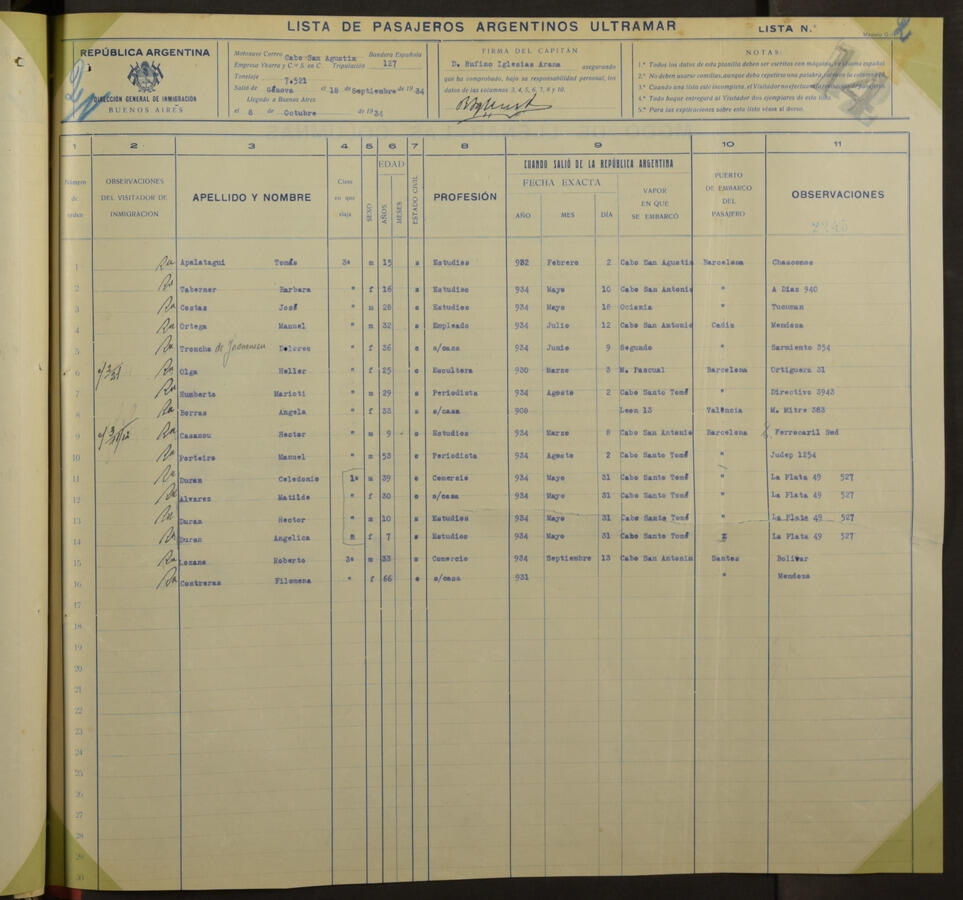 LISTA DE PASAJEROS ARGENTINOS ULTRAMAR LISTA N.º
REPÚBLICA ARGENTINA
DIRECCIÓN GENERAL DE INMIGRACIÓN
BUENOS AIRES
Motonave Correo Cabo San Agustin Bandera Española
Empresa Ybarra y C.ía S. en C. Tripulación 127
Tonelaje 7.521
Salió de Génova el 18 de Septiembre de 1934
Llegado a Buenos Aires
el 8 de Octubre de 1934
FIRMA DEL CAPITÁN
D. Rufino Iglesias Arana asegurando
que ha comprobado, bajo su responsabilidad personal, los
datos de las columnas 3, 4, 5, 6, 7, 8 y 10.
NOTAS:
1.ª Todos los datos de esta planilla deben ser escritos con máquina, en idioma español.
2.ª No deben usarse comillas, aunque deba repetirse una palabra
3.ª Cuando una lista esté incompleta, el Visitador no efectuará
4.ª Todo buque entregará al Visitador dos ejemplares de esta lista
5.ª Para las explicaciones sobre esta lista véase al dorso.
14
1 2 3 4 5 6 7 8 9 10 11
Número de orden
OBSERVACIONES DEL VISITADOR DE INMIGRACIÓN
APELLIDO Y NOMBRE
Clase en que viaja
SEXO
EDAD
AÑOS
MESES
ESTADO CIVIL
PROFESIÓN
CUANDO SALIÓ DE LA REPÚBLICA ARGENTINA
FECHA EXACTA
AÑO MES DÍA
VAPOR EN QUE SE EMBARCÓ
PUERTO DE EMBARCO DEL PASAJERO
OBSERVACIONES
1 Apalatagui Tomás 3ª m 15 s Estudios 932 Febrero 2 Cabo San Agustin Barcelona
2 Taberner Barbara " f 16 s Estudios 934 Mayo 10 Cabo San Antonio " A Dias 940
3 Costas José " m 28 s Estudios 934 Mayo 18 Oceania " Tucuman
4 Ortega Manuel " m 32 Empleado 934 Julio 12 Cabo San Antonio Cadiz Mendoza
5 Troncha de Dolores " f 36 s/casa 934 Junio 9 Segundo " Sarmiento 354
6 Olga Heller " f 25 Escultora 930 Marzo 3 M. Pascual Barcelona Ortiguera 31
7 Humberto Marioti " m 29 Periodista 934 Agosto 2 Cabo Santo Tomé " Directivo 3943
8 Borras Angela " f 33 s/casa 908 Leon 13 Valencia M. Mitre 383
9 Casanou Hector " m 9 - Estudios 934 Marzo 8 Cabo San Antonio Barcelona Ferrocaril Sud
10 Porteiro Manuel " m 53 Periodista 934 Agosto 2 Cabo Santo Tomé " Judep 1254
11 Duran Celedonio 1ª m 39 Comercio 934 Mayo 31 Cabo Santo Tomé " La Plata 49 527
12 Alvarez Matilde " f 30 s/casa 934 Mayo 31 Cabo Santo Tomé " La Plata 49 527
13 Duran Hector " m 10 Estudios 934 Mayo 31 Cabo Santo Tomé " La Plata 49 527
14 Duran Angelica " f 7 Estudios 934 Mayo 31 Cabo Santo Tomé " La Plata 49 527
15 Lozano Roberto 3ª m 33 Comercio 934 Septiembre 13 Cabo San Antonio Santos Bolivar
16 Contreras Filomena " f 66 s/casa 931 " Mendoza
17
18
19
20
21
22
23
24
25
26
27
28
29
30